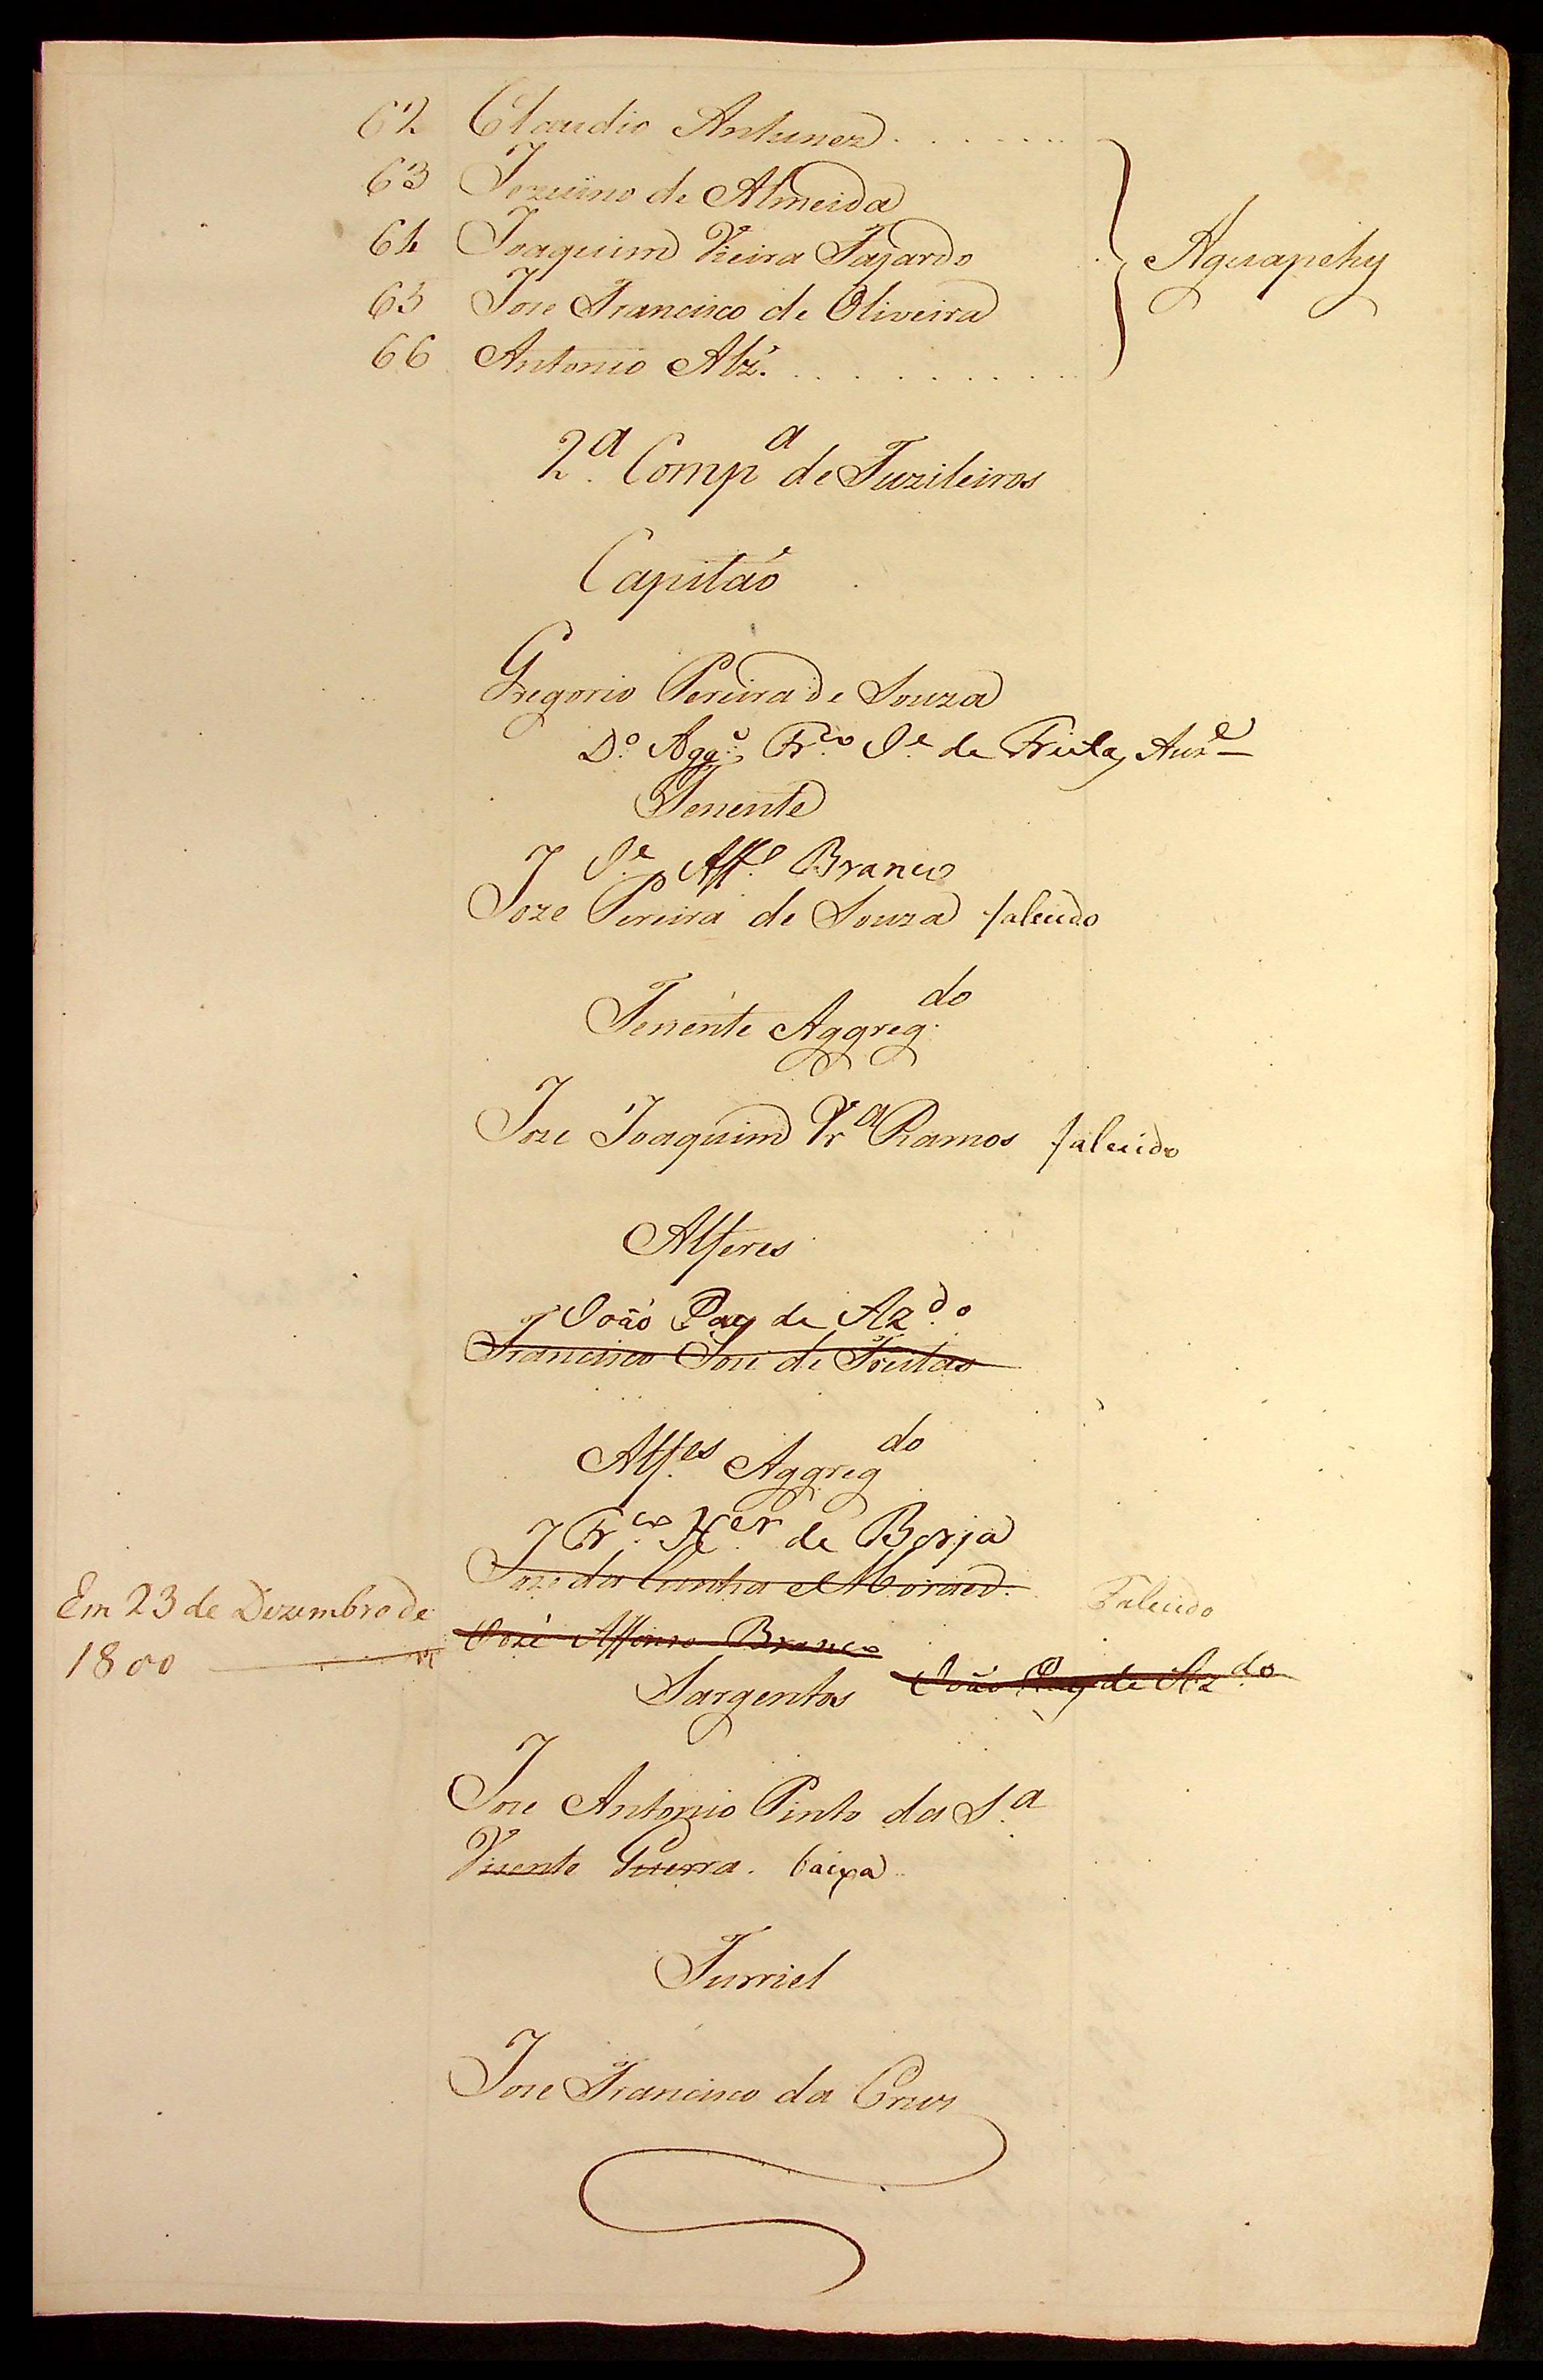 62 Claudio Antunez
63 Jezuino de Almeida
64 Joaquim Vieira Fajardo } Aguapehy
65 Joze Francisco de Oliveira
66 Antonio Alz.
2.ª Compª de Fuzileiros
Capitaõ
Gregorio Pereira de Souza
D.º Agg.º Fr.co J.e de Freitas Auz.e
Tenente
J.e Aff.º Branco
Joze Pereira de Souza falecido
Tenente Aggreg.do
Joze Joaquim Prª Ramos falecido
Alferes
João Paz de Az.do
Francisco Joze de Freitas
Alf.es Aggreg.do
Fr.co X.er de Borja
Joze da Cunha e Moraes. Falecido
Em 23 de Dezembro de
1800
Joze Affonso Branco
Sargentos João Paz de Az.do
Joze Antonio Pinto da S.ª
Vicente Guerra. baixa
Furriel
Joze Francisco da Cruz